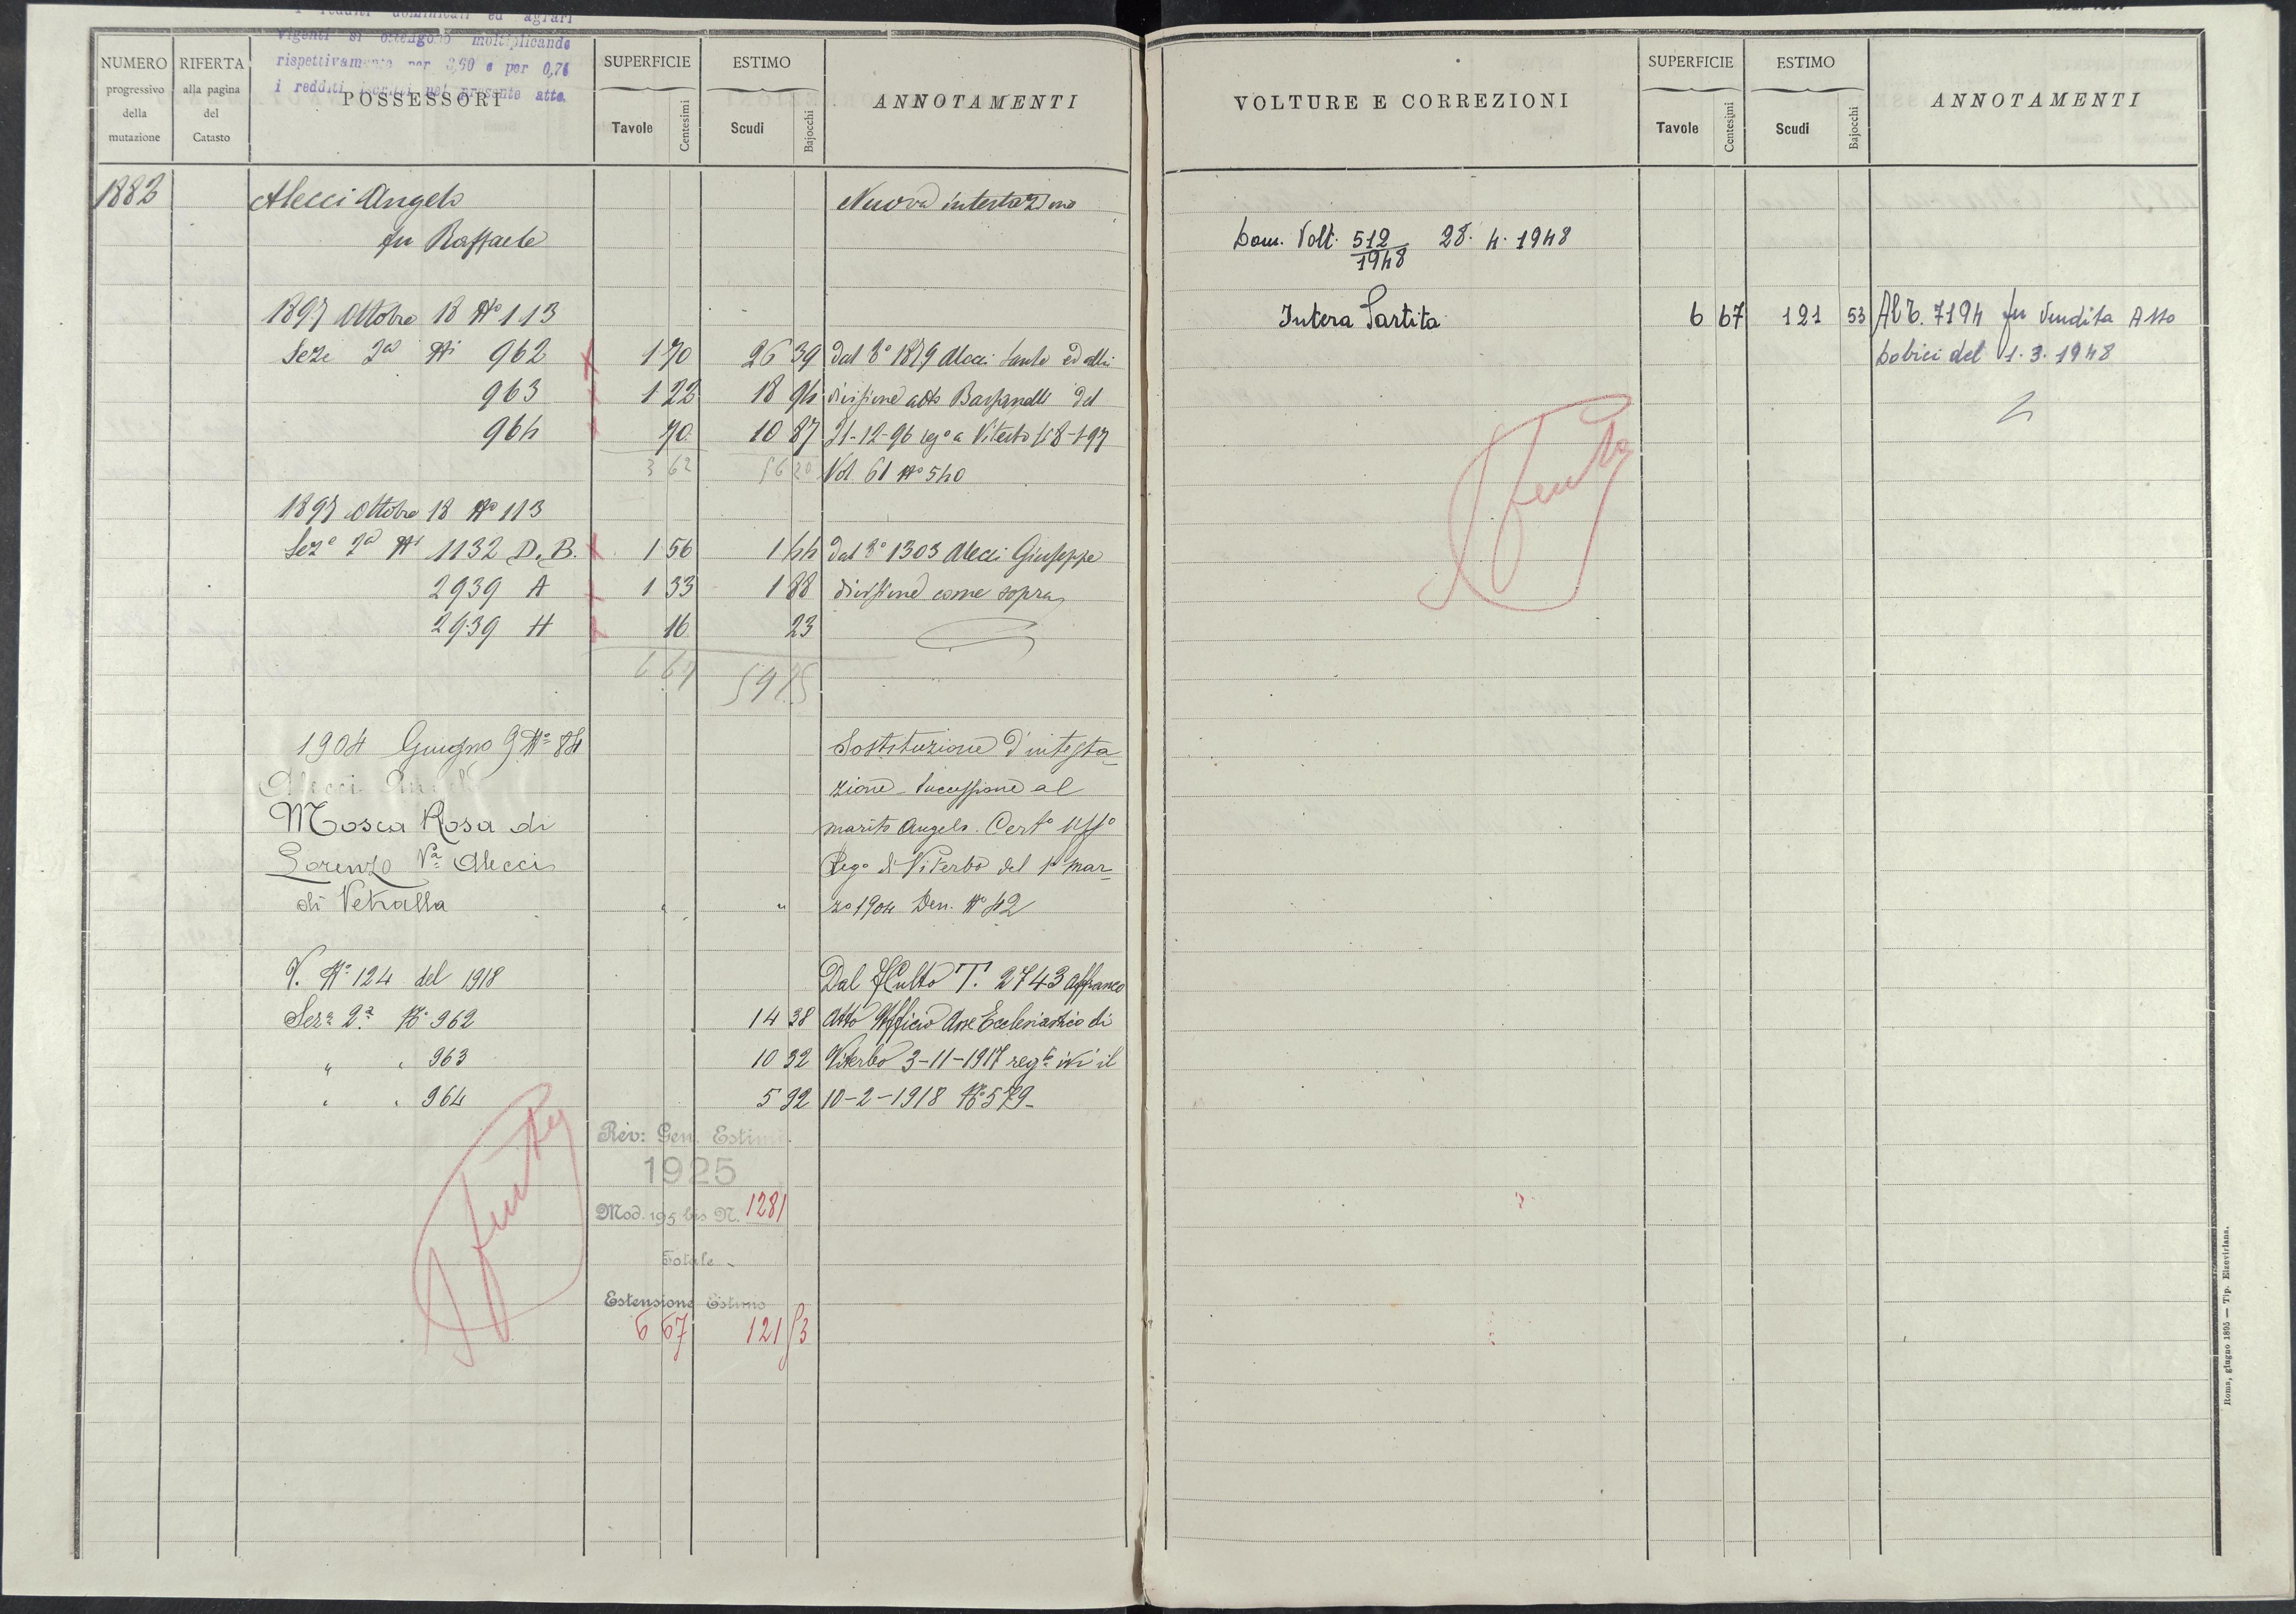 i redditi dominicali ed agrari
vigenti si ottengono moltiplicando
rispettivamente per 3,60 e per 0,76
i redditi iscritti nel presente atto.
NUMERO progressivo della mutazione
RIFERTA alla pagina del Catasto
POSSESSORI
SUPERFICIE
Tavole Centesimi
ESTIMO
Scudi Bajocchi
ANNOTAMENTI
1882 Alecci Angelo Nuova intestazione
fu Raffaele
1897 Ottobre 18 Nº 113
Seze 2ª Ni 962 1 70 26 39 Dal 3º 1819 Alecci Santo ed altri
963 1 22 18 94 divisione atto del
964 70 10 87 21-12-96 rego a Viterbo li 8-1-97
3 62 56 20 Vol 61 Nº 540
1897 Ottobre 18 Nº 113
Seze 2ª Ni 1132 D. B. 1 56 1 44 Dal 3º 1303 Alecci Giuseppe
2939 A 1 33 1 88 divisione come sopra
2939 H 16 23
6 67 59 75
1904 Giugno 9 Nº 84 Sostituzione d'intesta-
Alecci zione - Successione al
Mosca Rosa di marito Angelo. Certº Uffº
Lorenzo Vª Alecci Rego di Viterbo del 1º Mar-
di Vetralla " " zo 1904 Den. Nº 42
V. Nº 124 del 1918 Dal F Culto T. 2743 affranco
Sezª 2ª Nº 962 14 38 Atto Ufficio Asse Ecclesiastico di
" " 963 10 32 Viterbo 3-11-1917 regº ivi il
" " 964 5 92 10-2-1918 Nº 579-
Rev: Gen. Estimi.
1925
Mod. 195 bis N. 1281
Totale -
Estensione Estimo
6 67 121 53
VOLTURE E CORREZIONI
SUPERFICIE
Tavole Centesimi
ESTIMO
Scudi Bajocchi
ANNOTAMENTI
Dom. Volt. 512/1948 28. 4. 1948
Intera Partita 6 67 121 53 Al T. 7194 fu Vendita Atto
del 1. 3. 1948
Roma, giugno 1895 — Tip. Elzeviriana.